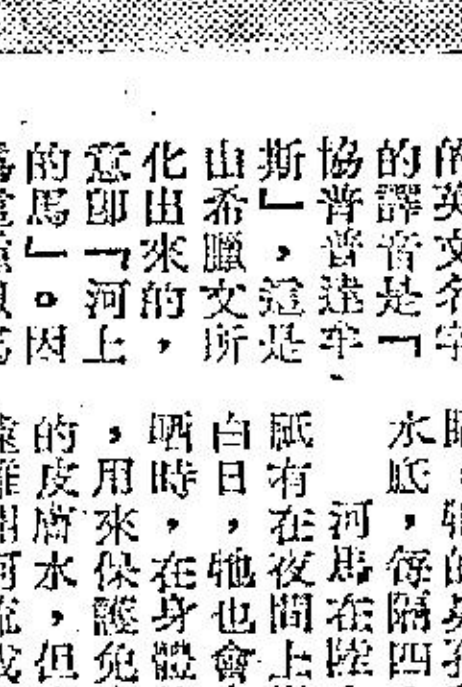 的英文名字
的譯音是「
協普普達牟
斯」，這是
由希臘文所
化出來的，
意即「河上
的馬」。因
水底，每隔四
河馬在陸
祇有在夜間上
白日，牠也會
晒時，在身體
，用來保護免
的皮膚水，但